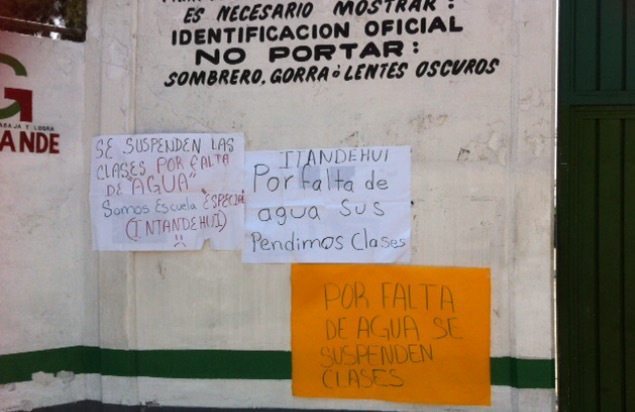 ES NECESARIO MOSTRAR:
IDENTIFICACION OFICIAL
NO PORTAR:
SOMBRERO, GORRA ó LENTES OSCUROS
G
ABAJA Y LOGRA
ANDE
SE SUSPENDEN LAS
CLASES POR FALTA
DE "AGUA"
Somos Escuela ESPECIAL
(INTANDEHUI)
ITANDEHUI
Por falta de
agua Sus
Pendimos Clases
POR FALTA
DE AGUA SE
SUSPENDEN
CLASES